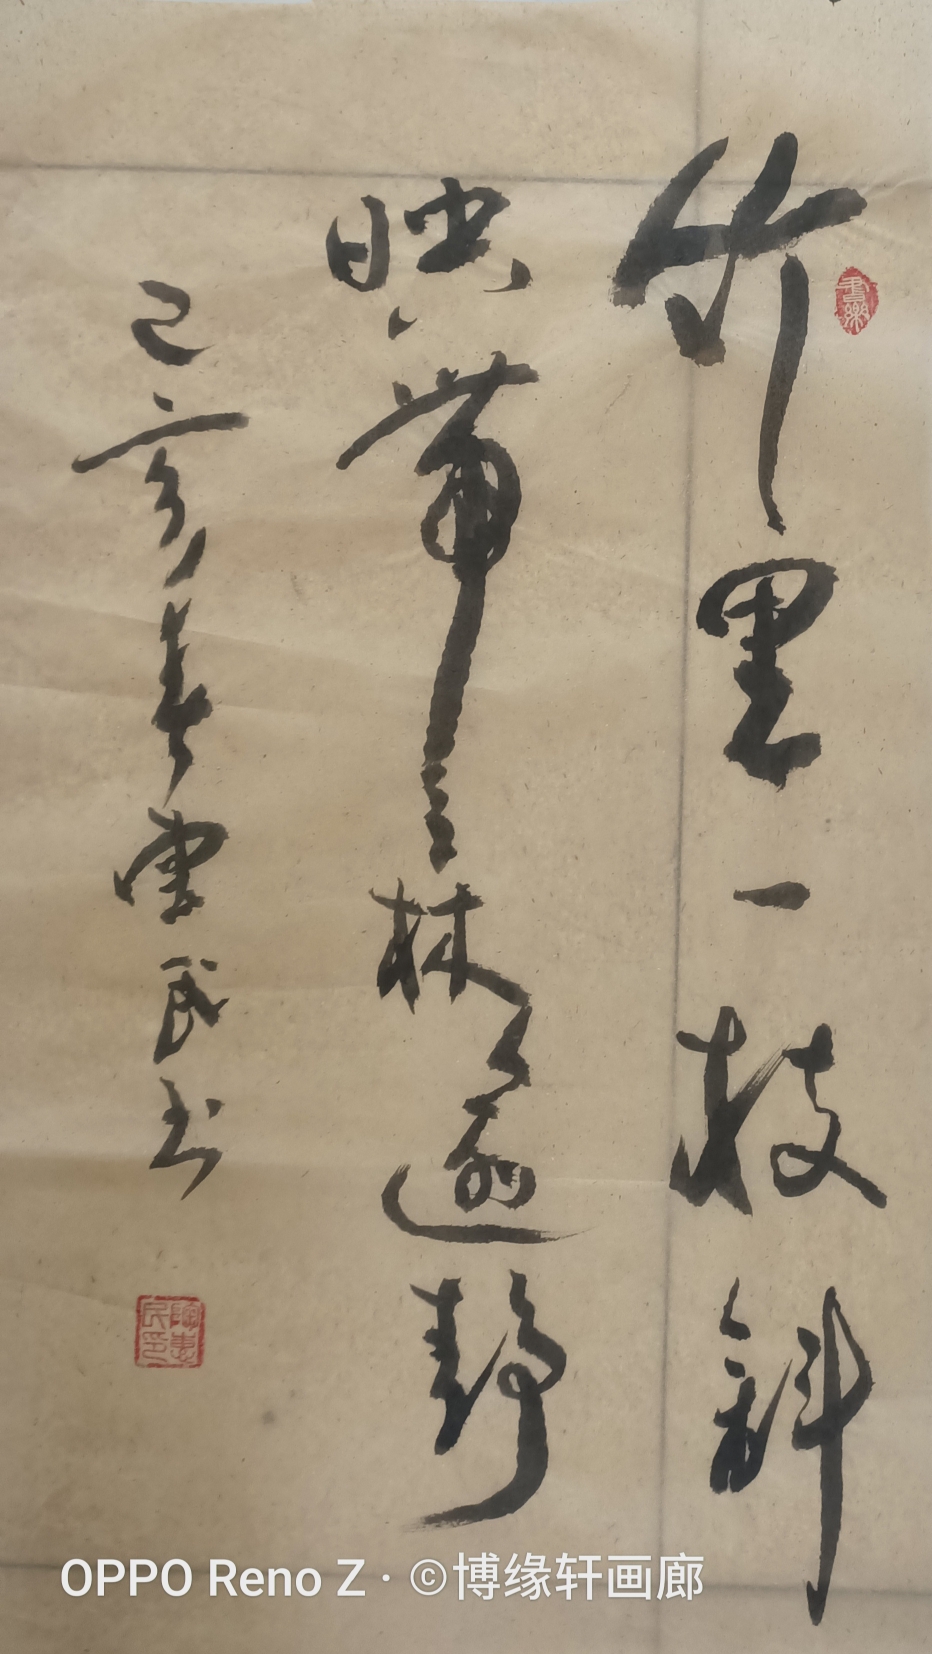 竹里一枝斜
映带林逾静
己亥春惠民书
陶惠民印
OPPO Reno Z · ©博缘轩画廊